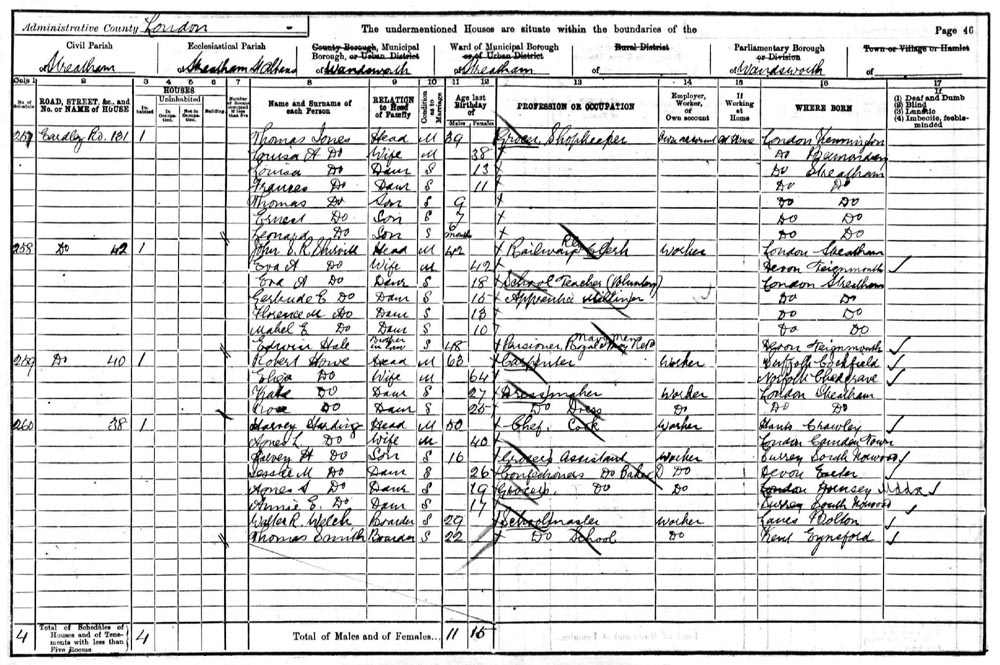 Administrative County London The undermentioned Houses are situate within the boundaries of the Page 46
Civil Parish Ecclesiastical Parish County Borough, Municipal Borough or Urban District Ward of Municipal Borough or of Urban District Rural District Parliamentary Borough or Division Town or Village or Hamlet
of Streatham of Streatham St Albans of Wandsworth of Streatham of of Wandsworth of
Cols 1 2 3 4 5 6 7 8 9 10 11 12 13 14 15 16 17
No. of Schedule ROAD, STREET, &c., and No. or NAME of HOUSE HOUSES Inhabited Uninhabited In Occupation Not in Occupation Building Number of Rooms occupied if less than five Name and Surname of each Person RELATION to Head of Family Condition as to Marriage Age last Birthday of Males Females PROFESSION OR OCCUPATION Employer, Worker, or Own account If Working at Home WHERE BORN (1) Deaf and Dumb (2) Blind (3) Lunatic (4) Imbecile, feeble-minded
257 Eardley Rd. 131 1 Thomas Jones Head M 39 Grocer Shopkeeper Own account At Home London Kennington
Louisa A Do Wife M 38 Do Bermondsey
Louisa Do Daur S 13 Do Streatham
Frances Do Daur S 11 Do Do
Thomas Do Son S 9 Do Do
Ernest Do Son S 7 Do Do
Leonard Do Son S 6 mths Do Do
258 Do 42 1 John E. R. Head M 42 Railway Clerk Worker London Streatham
Eva A Do Wife M 42 Devon Teignmouth
Eva A Do Daur S 18 School Teacher (Voluntary) London Streatham
Gertrude E Do Daur S 15 Apprentice Milliner Do Do
Florence M Do Daur S 13 Do Do
Mabel E Do Daur S 10 Do Do
Edwin Hale Brother in law S 48 Pensioner Royal Navy Devon Teignmouth
259 Do 40 1 Robert Howe Head M 63 Carpenter Worker Suffolk Cockfield
Eliza Do Wife M 64 Norfolk Chedgrave
Kate Do Daur S 27 Dressmaker Worker London Streatham
Rose Do Daur S 25 Do Dress Do Do Do
260 38 1 Harvey Harding Head M 50 Chef Cook Worker Hants Crawley
Agnes L Do Wife M 40 London Camden Town
Harvey H Do Son S 16 Grocers Assistant Worker Surrey South Norwood
Jessie M Do Daur S 26 Confectioners Do Baker Do Devon Exeter
Agnes S Do Daur S 19 Grocers Do Do London Hornsey Middx
Annie E. Do Daur S 17 Surrey South Norwood
Walter R. Welch Boarder S 29 Schoolmaster Worker Lancs Bolton
Thomas Smith Boarder S 22 Do School Do Kent Eynsford
4 Total of Schedules of Houses and of Tenements with less than Five Rooms 4 Total of Males and of Females... 11 15